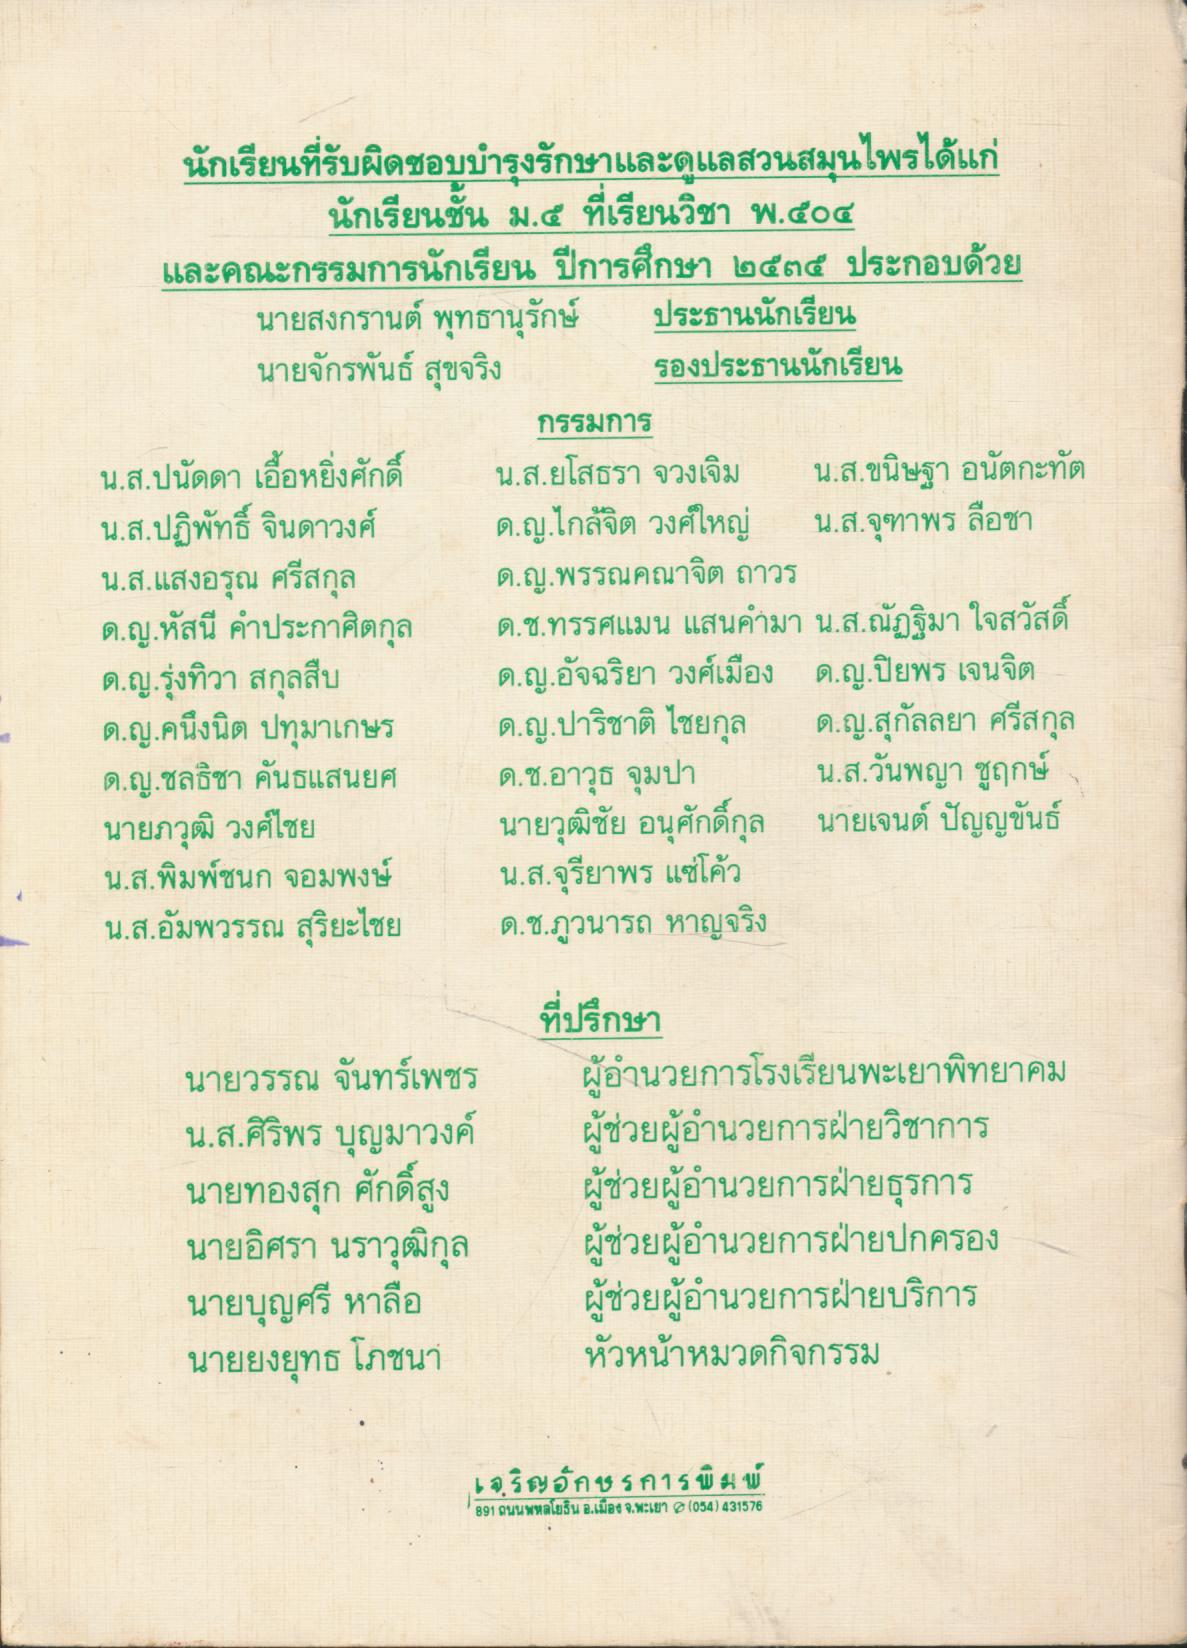 นักเรียนที่รับผิดชอบบำรุงรักษาและดูแลสวนสมุนไพรได้แก่
นักเรียนชั้น ม.๕ ที่เรียนวิชา พ.๕๐๔
และคณะกรรมการนักเรียน ปีการศึกษา ๒๕๓๕ ประกอบด้วย
นายสงกรานต์ พุทธานุรักษ์ ประธานนักเรียน
นายจักรพันธ์ สุขจริง รองประธานนักเรียน
กรรมการ
น.ส.ปนัดดา เอื้อหยิ่งศักดิ์ น.ส.ยโสธรา จวงเจิม น.ส.ขนิษฐา อนัตกะทัต
น.ส.ปฏิพัทธิ์ จินดาวงศ์ ด.ญ.ไกล้จิต วงศ์ใหญ่ น.ส.จุฑาพร ลือชา
น.ส.แสงอรุณ ศรีสกุล ด.ญ.พรรณคณาจิต ถาวร
ด.ญ.หัสนี คำประกาศิตกุล ด.ช.ทรรศแมน แสนคำมา น.ส.ณัฏฐิมา ใจสวัสดิ์
ด.ญ.รุ่งทิวา สกุลสืบ ด.ญ.อัจฉริยา วงศ์เมือง ด.ญ.ปิยพร เจนจิต
ด.ญ.คนึงนิต ปทุมาเกษร ด.ญ.ปาริชาติ ไชยกุล ด.ญ.สุกัลลยา ศรีสกุล
ด.ญ.ชลธิชา คันธแสนยศ ด.ช.อาวุธ จุมปา น.ส.วันพญา ชูฤกษ์
นายภวุฒิ วงศ์ไชย นายวุฒิชัย อนุศักดิ์กุล นายเจนต์ ปัญญขันธ์
น.ส.พิมพ์ชนก จอมพงษ์ น.ส.จุรียาพร แซ่โค้ว
น.ส.อัมพวรรณ สุริยะไชย ด.ช.ภูวนารถ หาญจริง
ที่ปรึกษา
นายวรรณ จันทร์เพชร ผู้อำนวยการโรงเรียนพะเยาพิทยาคม
น.ส.ศิริพร บุญมาวงค์ ผู้ช่วยผู้อำนวยการฝ่ายวิชาการ
นายทองสุก ศักดิ์สูง ผู้ช่วยผู้อำนวยการฝ่ายธุรการ
นายอิศรา นราวุฒิกุล ผู้ช่วยผู้อำนวยการฝ่ายปกครอง
นายบุญศรี หาลือ ผู้ช่วยผู้อำนวยการฝ่ายบริการ
นายยงยุทธ โภชนา หัวหน้าหมวดกิจกรรม
เจริญอักษรการพิมพ์
891 ถนนพหลโยธิน อ.เมือง จ.พะเยา ✆ (054) 431576